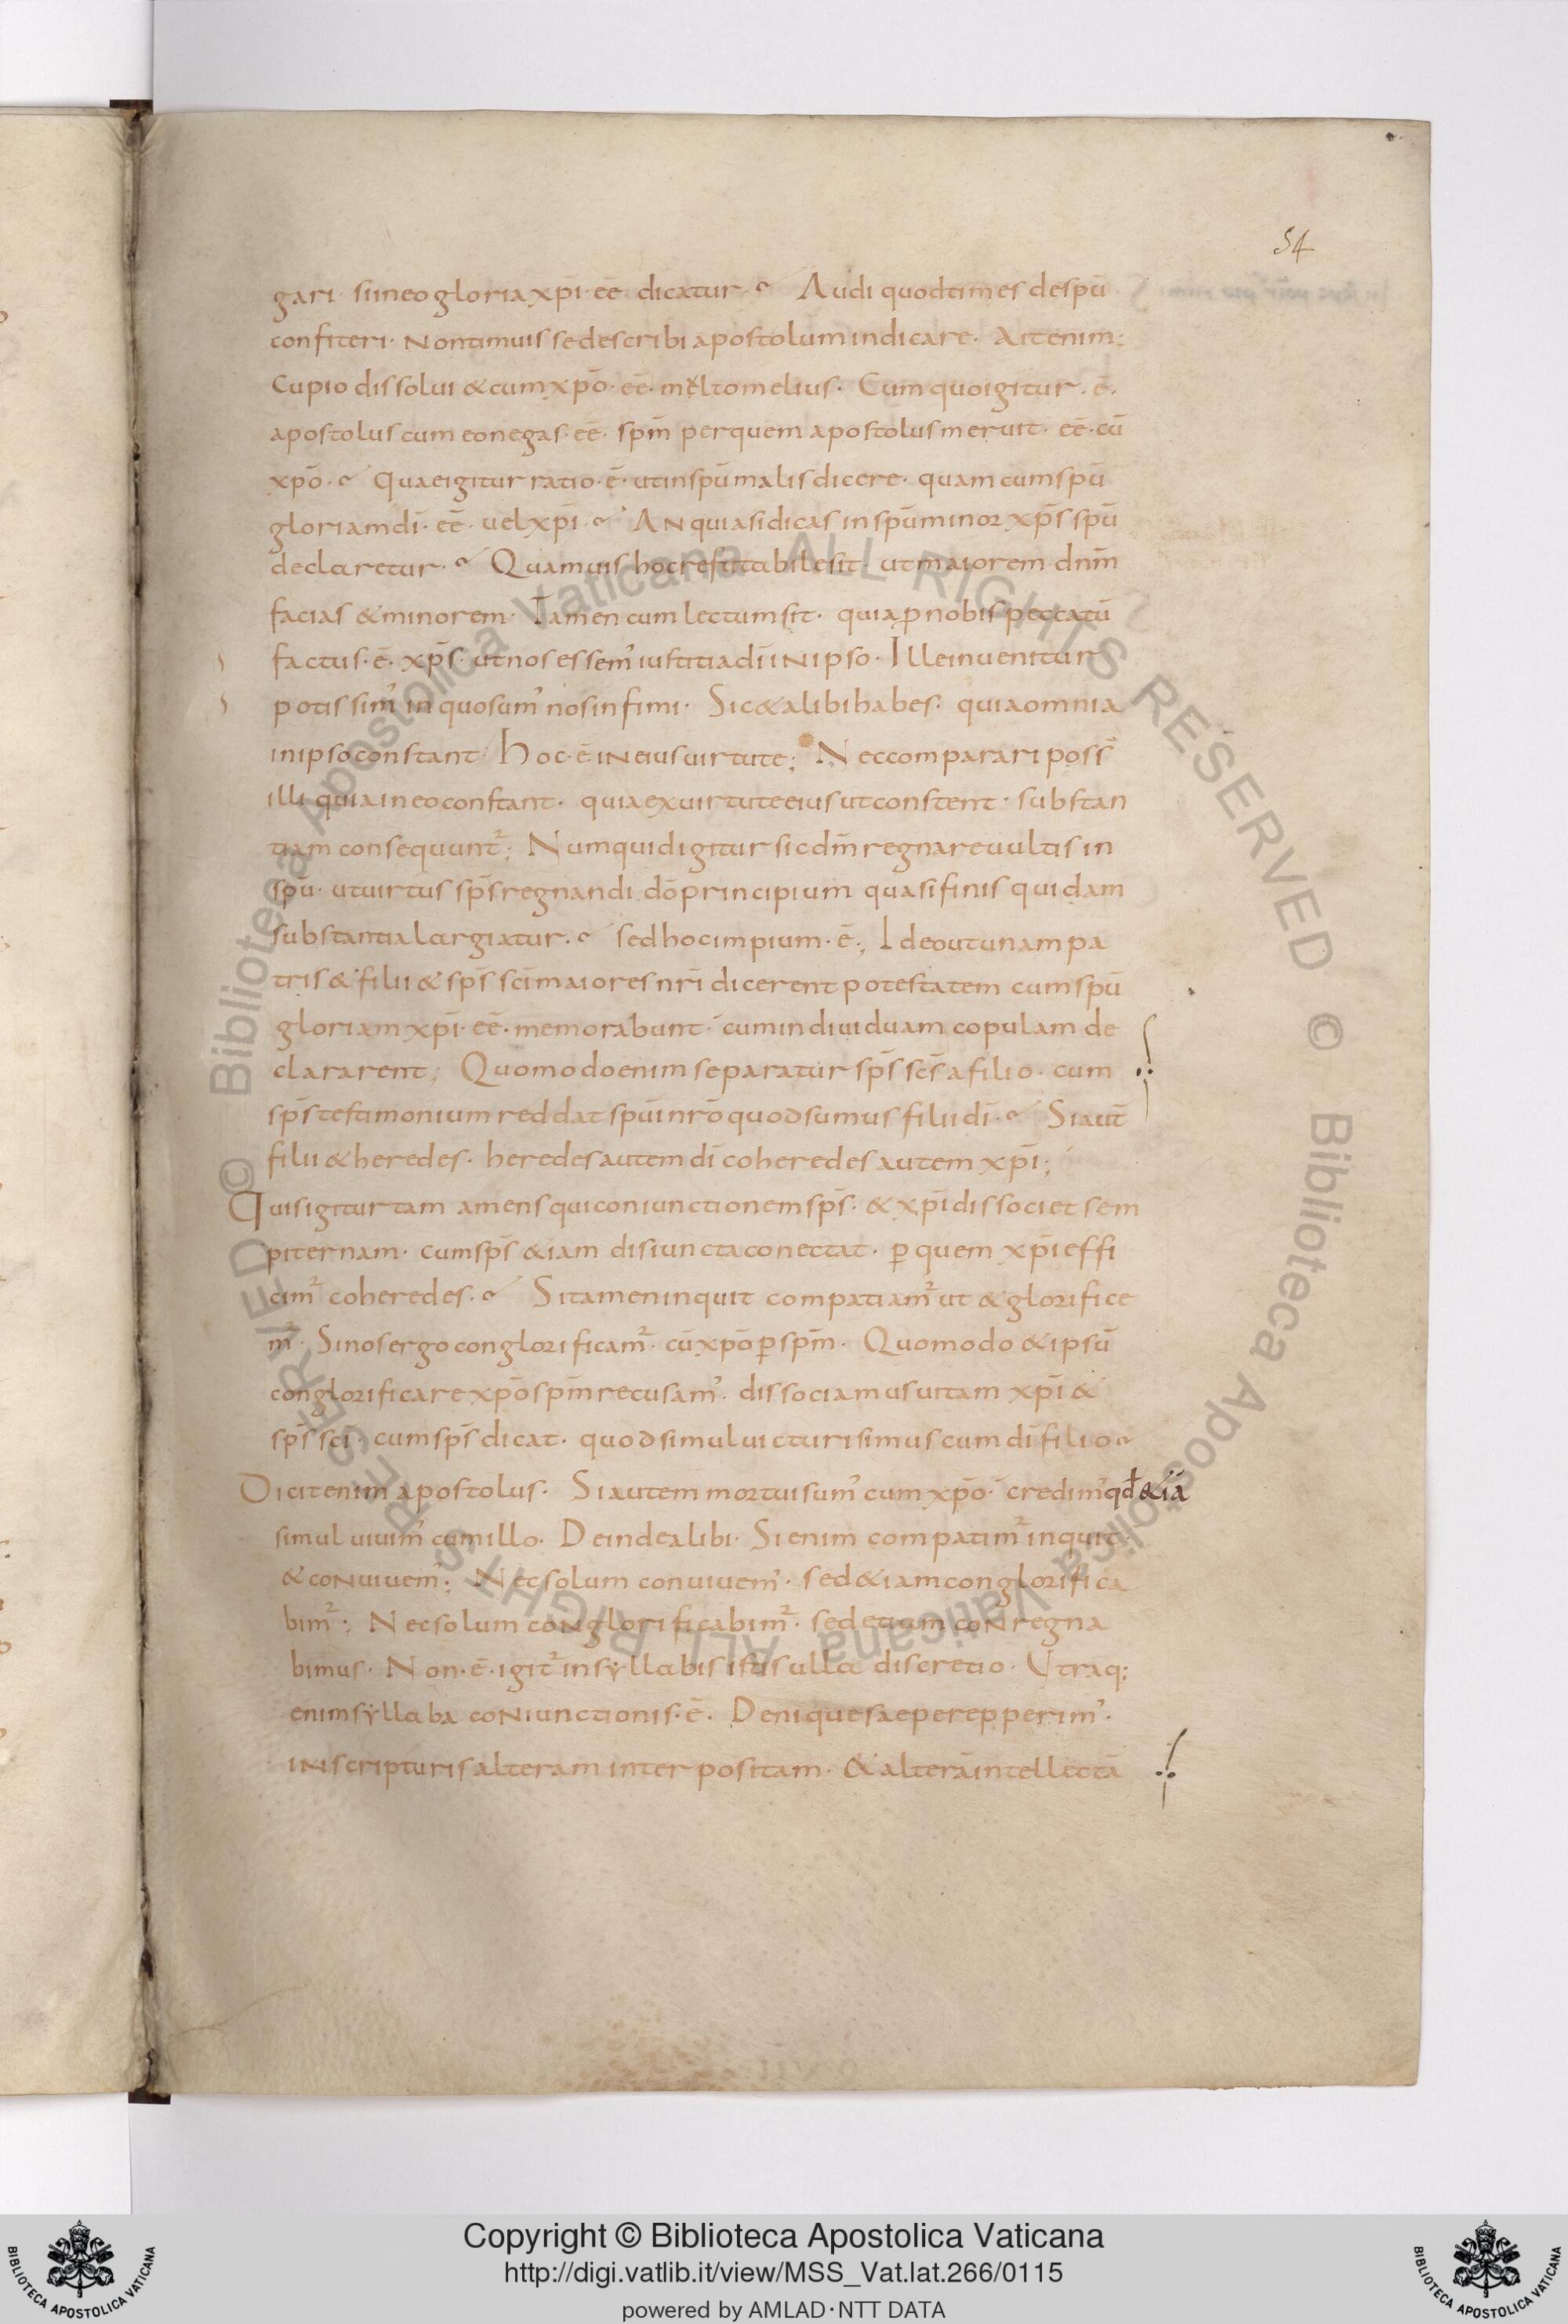 54
gari· si in eo gloria xp̄i· eē dicatur· Audi quod times de spū
confiteri· Non timuisse describi apostolum indicare· Ait enim;
Cupio dissolui & cum xp̄o· eē· multo melius· Cum quo igitur· ē·
apostolus cum eo negas· eē· spm̄ per quem apostolus meruit· eē· cū
xp̄o· Quae igitur ratio· ē· ut in spū malis dicere· quam cum spū
gloriam dī· eē· uel xp̄i· An quia si dicas in spū minor xp̄s spū
declaretur· Quamuis hoc refutabile sit· ut maiorem dnm̄
facias & minorem· Tamen cum lectum sit· quia ꝓ nobis peccatū
factus· ē· xp̄s· ut nos essem' iustitia dī in ipso· Ille inuenitur
potissim' in quo sum' nos infimi· Sic & alibi habes· quia omnia
in ipso constant· Hoc· ē in eius uirtute; Nec comparari poss̄
illi quia in eo constant· quae ex uirtute eius ut constent· substan
tiam consequunt²; Numquid igitur sic dm̄ regnare uultis in
spū· ut uirtus sps̄ regnandi dō principium quasi finis quidam
substantia largiatur· sed hoc impium· ē; Ideo ut unam pa
tris & filii & sps̄ scī maiores nrī dicerent potestatem cum spū
gloriam xp̄i· eē· memorabunt· cum indiuiduam copulam de
clararent; Quomodo enim separatur sps̄ scs̄ a filio· cum
sps̄ testimonium reddat spūi nrō quod sumus filii dī· Si aut̄
filii & heredes· heredes autem dī coheredes autem xp̄i;
Quis igitur tam amens qui coniunctionem sps̄· & xp̄i dissociet sem
piternam· cum sps̄ &iam disiuncta conectat· ꝑ quem xp̄i effi
cim² coheredes· Si tamen inquit compatiam² ut & glorifice
m²· Si nos ergo conglorificam²· cū xp̄o ꝑ spm̄· Quomodo & ipsū
conglorificare xp̄o spm̄ recusam'· dissociamus uitam xp̄i &
sps̄ scī· cum sps̄ dicat· quod simul uicturi simus cum dī filio
Dicit enim apostolus· Si autem mortui sum' cum xp̄o· credim' qđ &iā
simul uiuim' cum illo· Deinde alibi· Si enim compatim² inquit
& conuiuem'; Nec solum conuiuem'· sed &iam conglorifica
bim²; Nec solum conglorificabim²· sed etiam conregna
bimus· Non· ē· igit² in syllabis istis ulla discretio· Utraq;
enim syllaba coniunctionis· ē· Denique saepe repperim'·
in scripturis alteram interpositam· & alterā intellectā
Copyright © Biblioteca Apostolica Vaticana
http://digi.vatlib.it/view/MSS_Vat.lat.266/0115
powered by AMLAD·NTT DATA
© Biblioteca Apostolica Vaticana ALL RIGHTS RESERVED © Biblioteca Apostolica Vaticana ALL RIGHTS RESERVED
BIBLIOTECA APOSTOLICA VATICANA
BIBLIOTECA APOSTOLICA VATICANA